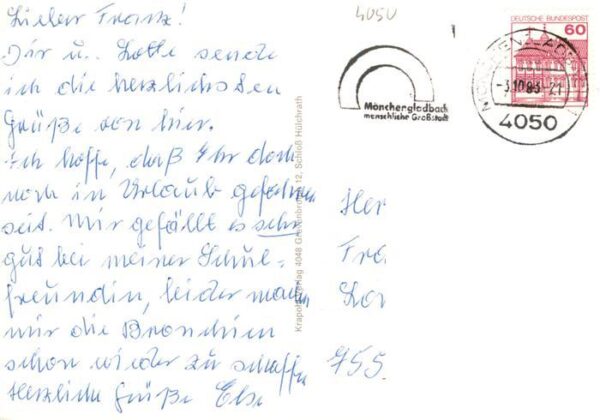 Lieber Franz!
Dir u. Lotte sende
ich die herzlichsten
Grüße von hier.
Ich hoffe, daß Ihr doch
noch in Urlaub gefahren
seid. Mir gefällt es sehr
gut bei meiner Schul-
freundin, leider machen
mir die Bronchien
schon wieder zu schaffen
Herzliche Grüße Else
4050
Mönchengladbach
menschliche Großstadt
DEUTSCHE BUNDESPOST
60
-3.10.83-21
4050
Krapohl-Verlag 4048 Grevenbroich 12, Schloß Hülchrath
Her
Fra
Lor
755